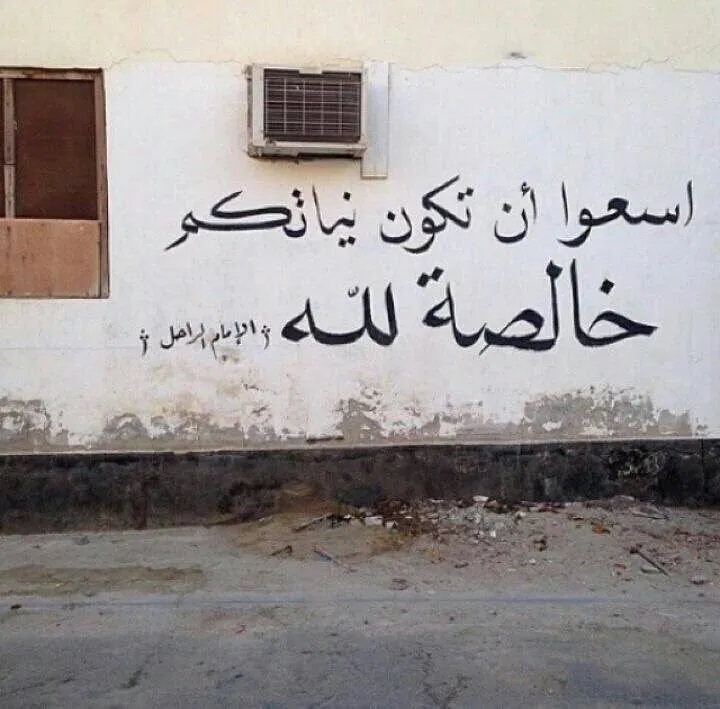 اسعوا أن تكون نياتكم
خالصة لله
الإمام الراحل